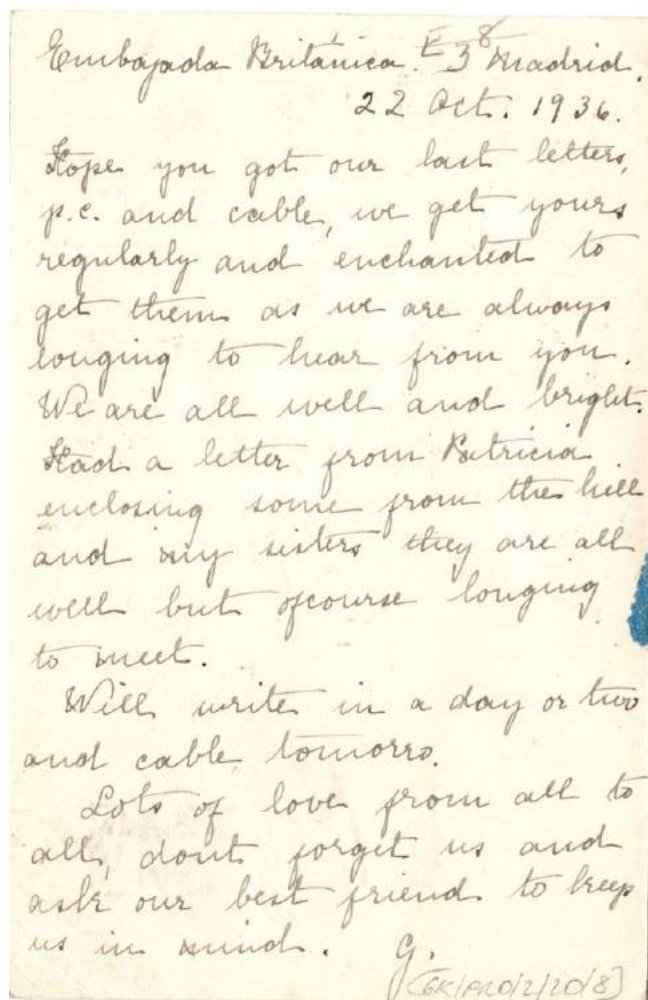 Embajada Británica. E 3 8 Madrid.
22 Oct. 1936.
Hope you got our last letters,
p.c. and cable, we get yours
regularly and enchanted to
get them as we are always
longing to hear from you.
We are all well and bright.
Had a letter from Patricia
enclosing some from the hill
and my sisters they are all
well but ofcourse longing
to meet.
Will write in a day or two
and cable tomorro.
Lots of love from all to
all, dont forget us and
ask our best friend to keep
us in mind. G.
[GK/PRO/2/20/8]